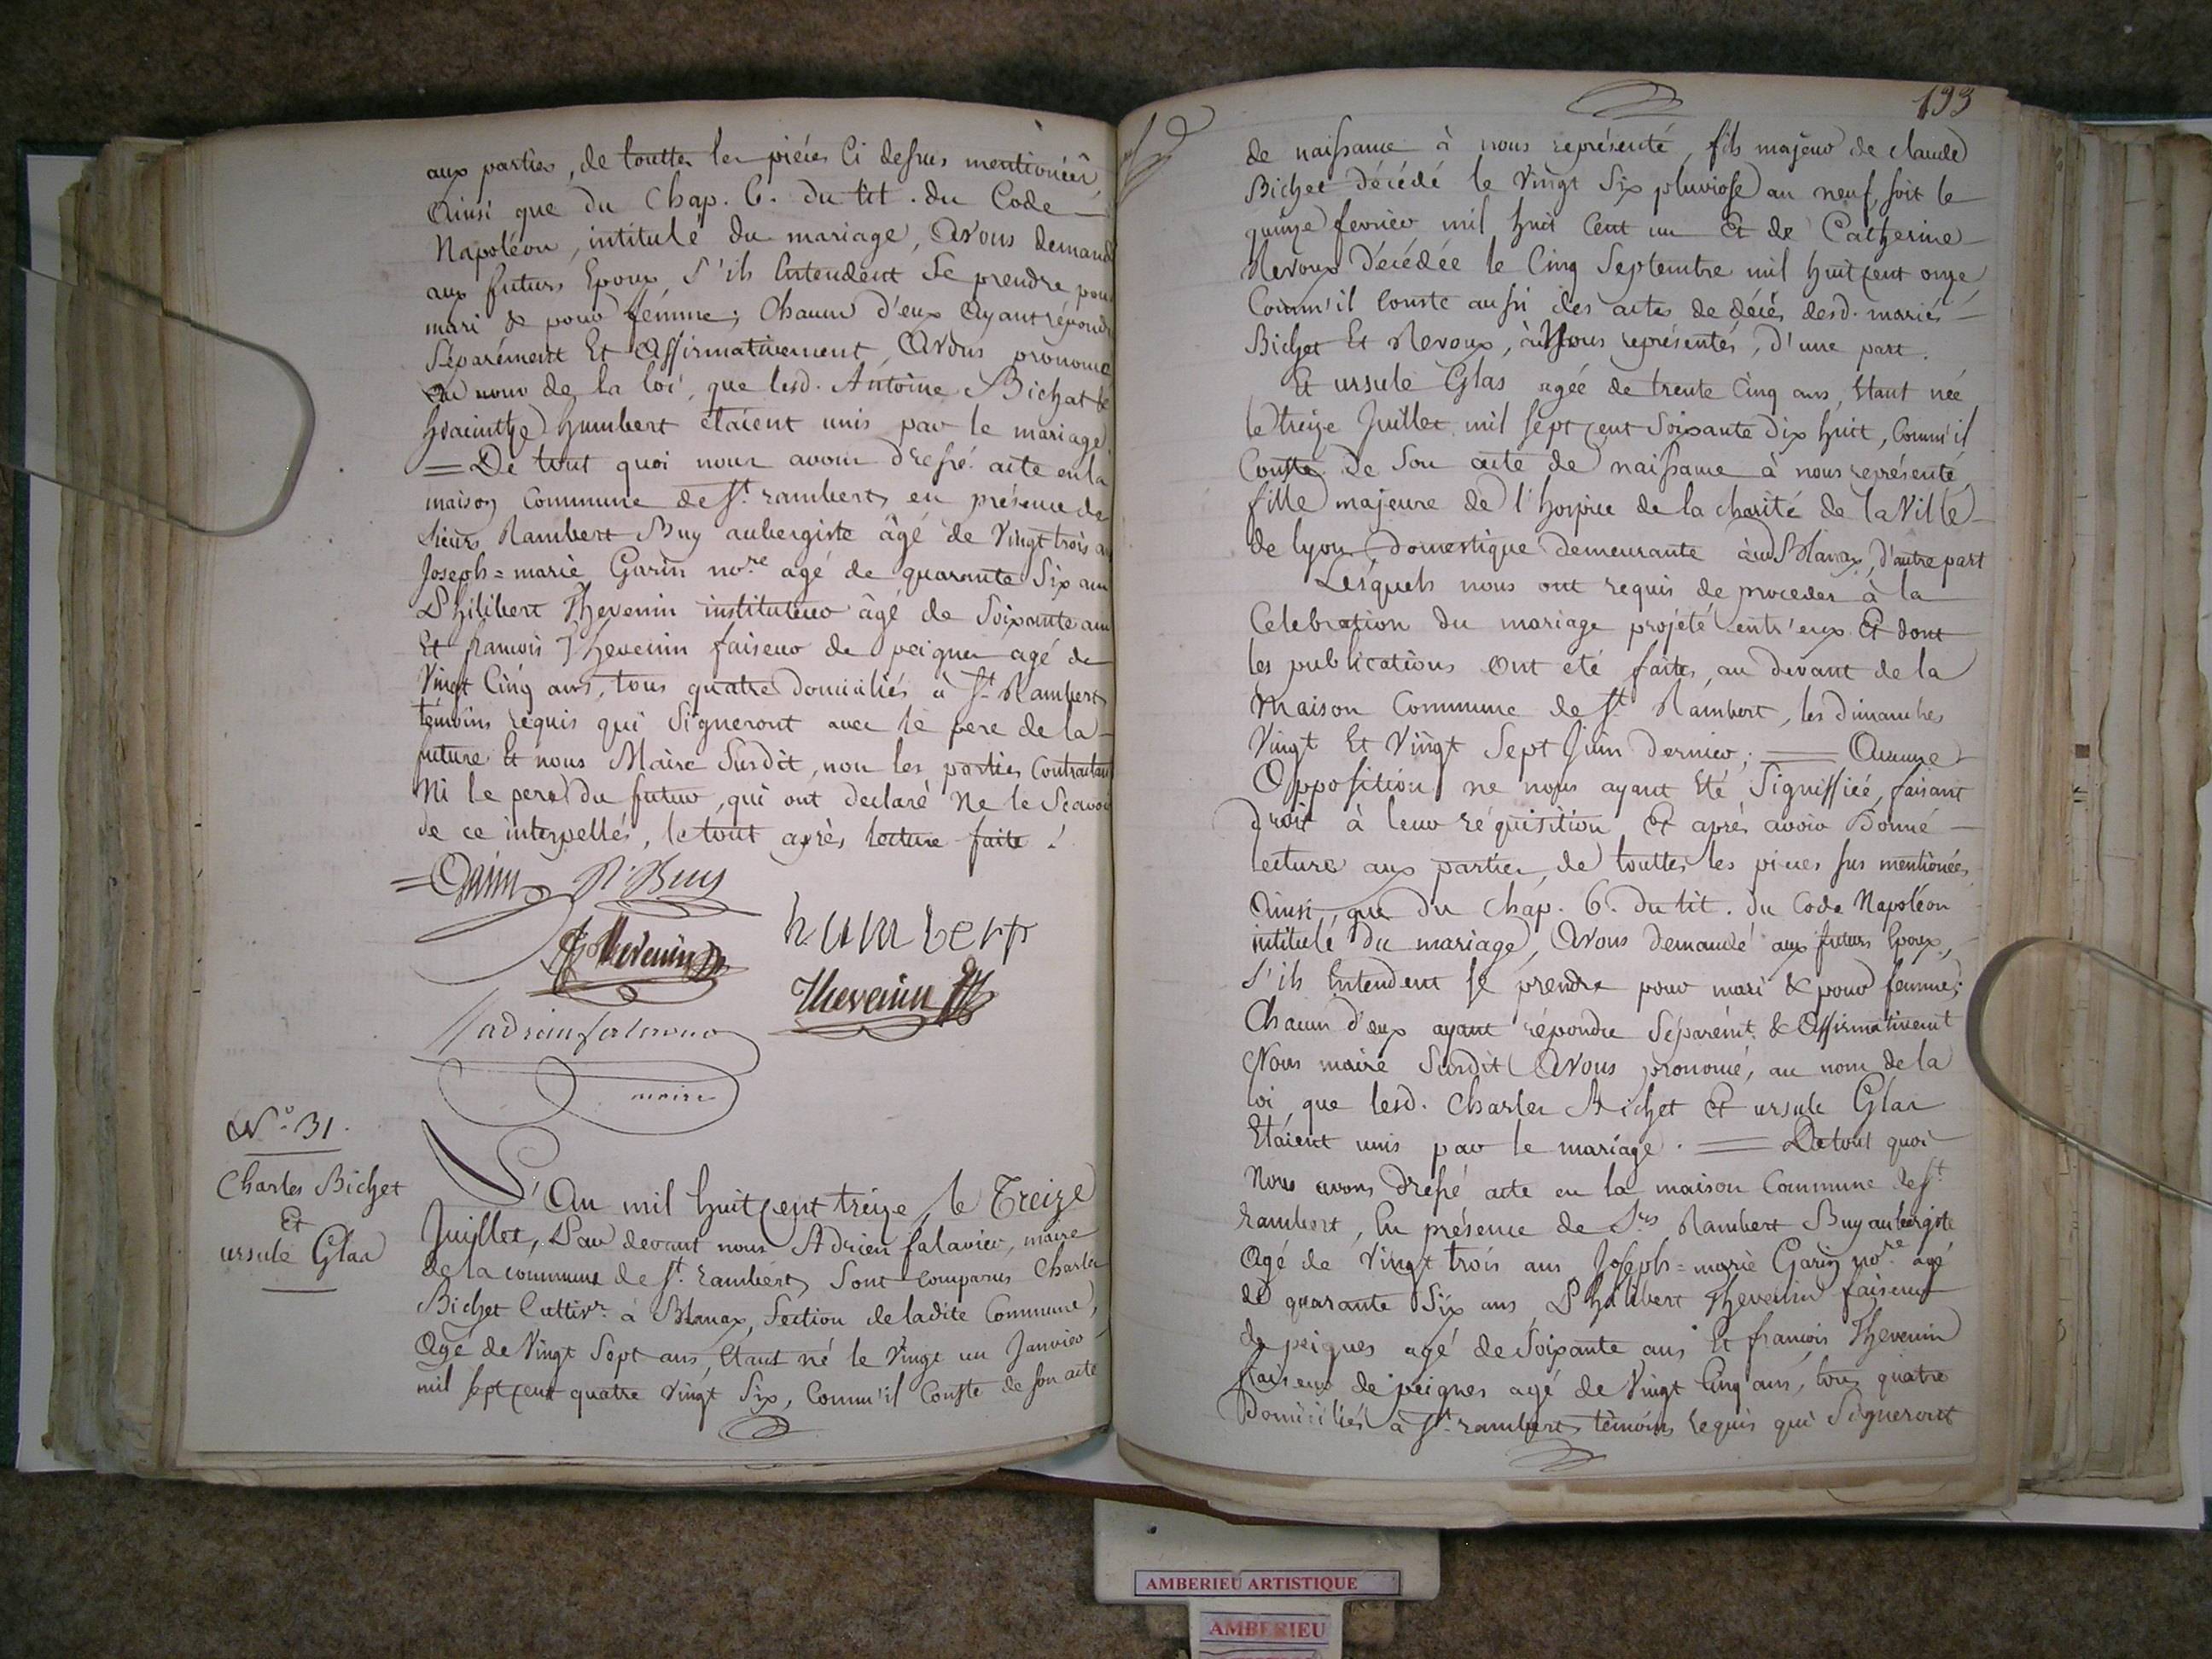 aux parties, de touttes les pieces ci dessus mentionées
Ainsi que du Chap. 6. du tit. du Code
Napoléon, intitulé du mariage, Avons demandé
aux futurs Epoux, s'ils Entendent Se prendre pour
mari & pour femme; Chacun d'eux Ayant répondu
Séparément Et Affirmativement, Avons prononcé
au nom de la loi, que lesd. Antoine Bichat &
hyacinthe humbert étaient unis par le mariage
= De tout quoi nous avons dressé acte en la
maison Commune de St. rambert, en présence de
sieurs Rambert Buy aubergiste âgé de Vingt trois ans
Joseph=marie Garin nore. agé de quarante Six ans
Philibert Thevenin instituteur âgé de Soixante ans
Et francois Thevenin faiseur de peignes agé de
Vingt Cinq ans, tous quatre domiciliés à St. Rambert,
témoins requis qui Signeront avec le pere de la
future Et nous Maire Susdit, non les parties Contractantes
Ni le pere du futur, qui ont declaré Ne le Scavoir
de ce interpellés, le tout après lecture faite.
=Garin R. Buy
humbert
Thevenin
Thevenin
adrien falavier
maire
N.° 31.
Charles Bichet
Et
ursule Glas
L'An mil huit cent treize, le Treize
Juillet, Par devant nous Adrien falavier, maire
de la commune de St. rambert, Sont comparus Charles
Bichet Cultivr. à Blanaz, Section de ladite Commune,
Agé de Vingt Sept ans, Etant né le Vingt un Janvier
mil sept cent quatre Vingt Six, Comm'il Conste de son acte
193
de naissance à nous représenté, fils majeur de claude
Bichet décédé le Vingt Six pluviose an neuf, soit le
quinze fevrier mil huit Cent un Et de Catherine
Revoux Décédée le Cinq Septembre mil huit cent onze
Comm'il Conste aussi des actes de décés desd. mariés
Bichet Et Revoux, à Nous représentés, d'une part.
Et ursule Glas agée de trente Cinq ans, Etant née
le treize Juillet mil sept cent Soixante dix huit, Comm'il
Conste de Son acte de naissance à nous représenté,
fille majeure de l'hospice de la charité de la Ville
de lyon, domestique demeurante aud. Blanaz, d'autre part
Lesquels nous ont requis de proceder à la
Celebration du mariage projeté entr'eux Et dont
les publications Ont été faites, au devant de la
Maison Commune de St. Rambert, les dimanches
Vingt Et Vingt Sept Juin Dernier; = Aucune
Opposition ne nous ayant Eté Signiffiée, faisant
droit à leur réquisition Et après avoir Donné
lecture aux parties, de touttes les pieces sus mentionées,
Ainsi, que du Chap. 6. du tit. du Code Napoléon
intitulé du mariage, Avons Demandé aux futurs Epoux,
S'ils Entendent se prendre pour mari & pour femme;
Chacun d'eux ayant répondu Séparémt. & Affirmativemt
Nous maire Susdit Avons prononcé, au nom de la
loi, que lesd. Charles Bichet Et ursule Glas
Etaient unis par le mariage. = De tout quoi
Nous avons dressé acte en la maison Commune de St.
rambert, En présence de Srs. Rambert Buy aubergiste
Agé de Vingt trois ans Joseph=marie Garin nore. agé
de quarante Six ans Philibert Thevenin faiseur
de peignes agé de Soixante ans Et francois Thevenin
faiseur de peignes agé de Vingt Cinq ans, tous quatre
Domiciliés à St. rambert, témoins requis qui Signeront
AMBERIEU ARTISTIQUE
AMBERIEU